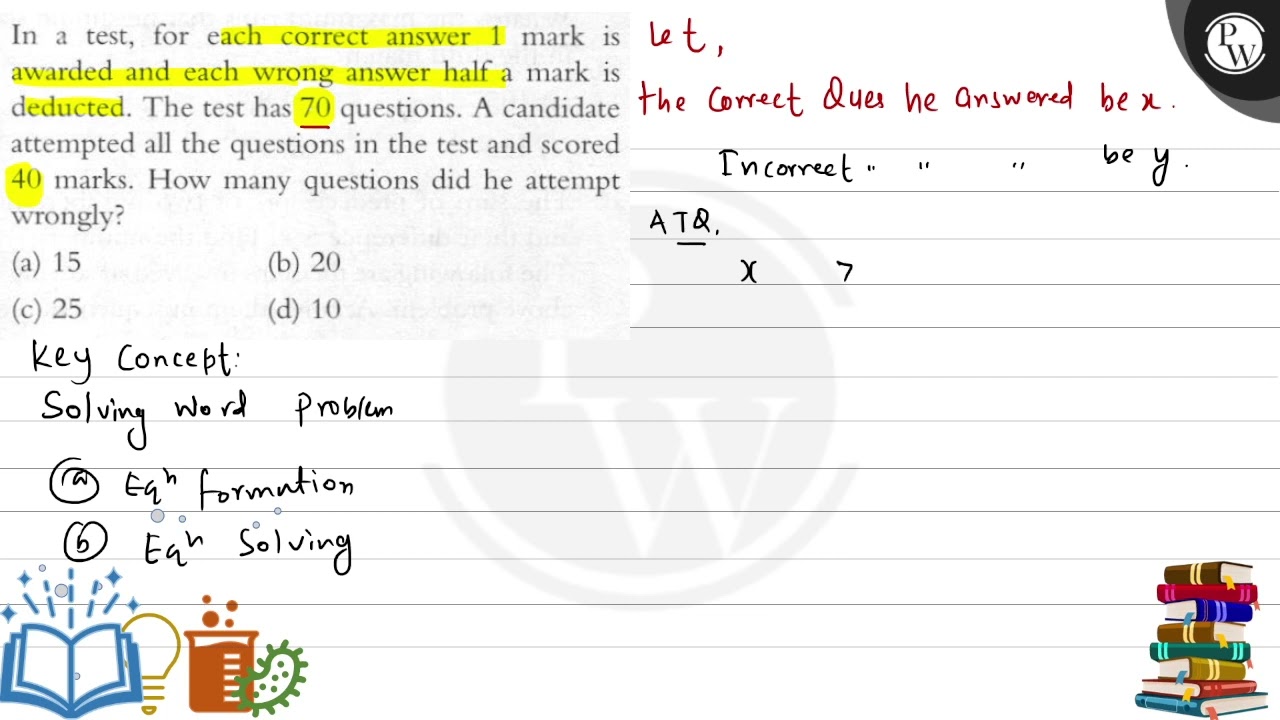 In a test, for each correct answer 1 mark is
awarded and each wrong answer half a mark is
deducted. The test has 70 questions. A candidate
attempted all the questions in the test and scored
40 marks. How many questions did he attempt
wrongly?
(a) 15 (b) 20
(c) 25 (d) 10
Key Concept:
Solving Word Problem
(a) Eqⁿ formation
(b) Eqⁿ Solving
Let,
the Correct Ques he answered be x.
Incorrect " " " be y.
ATQ,
x
PW
PW